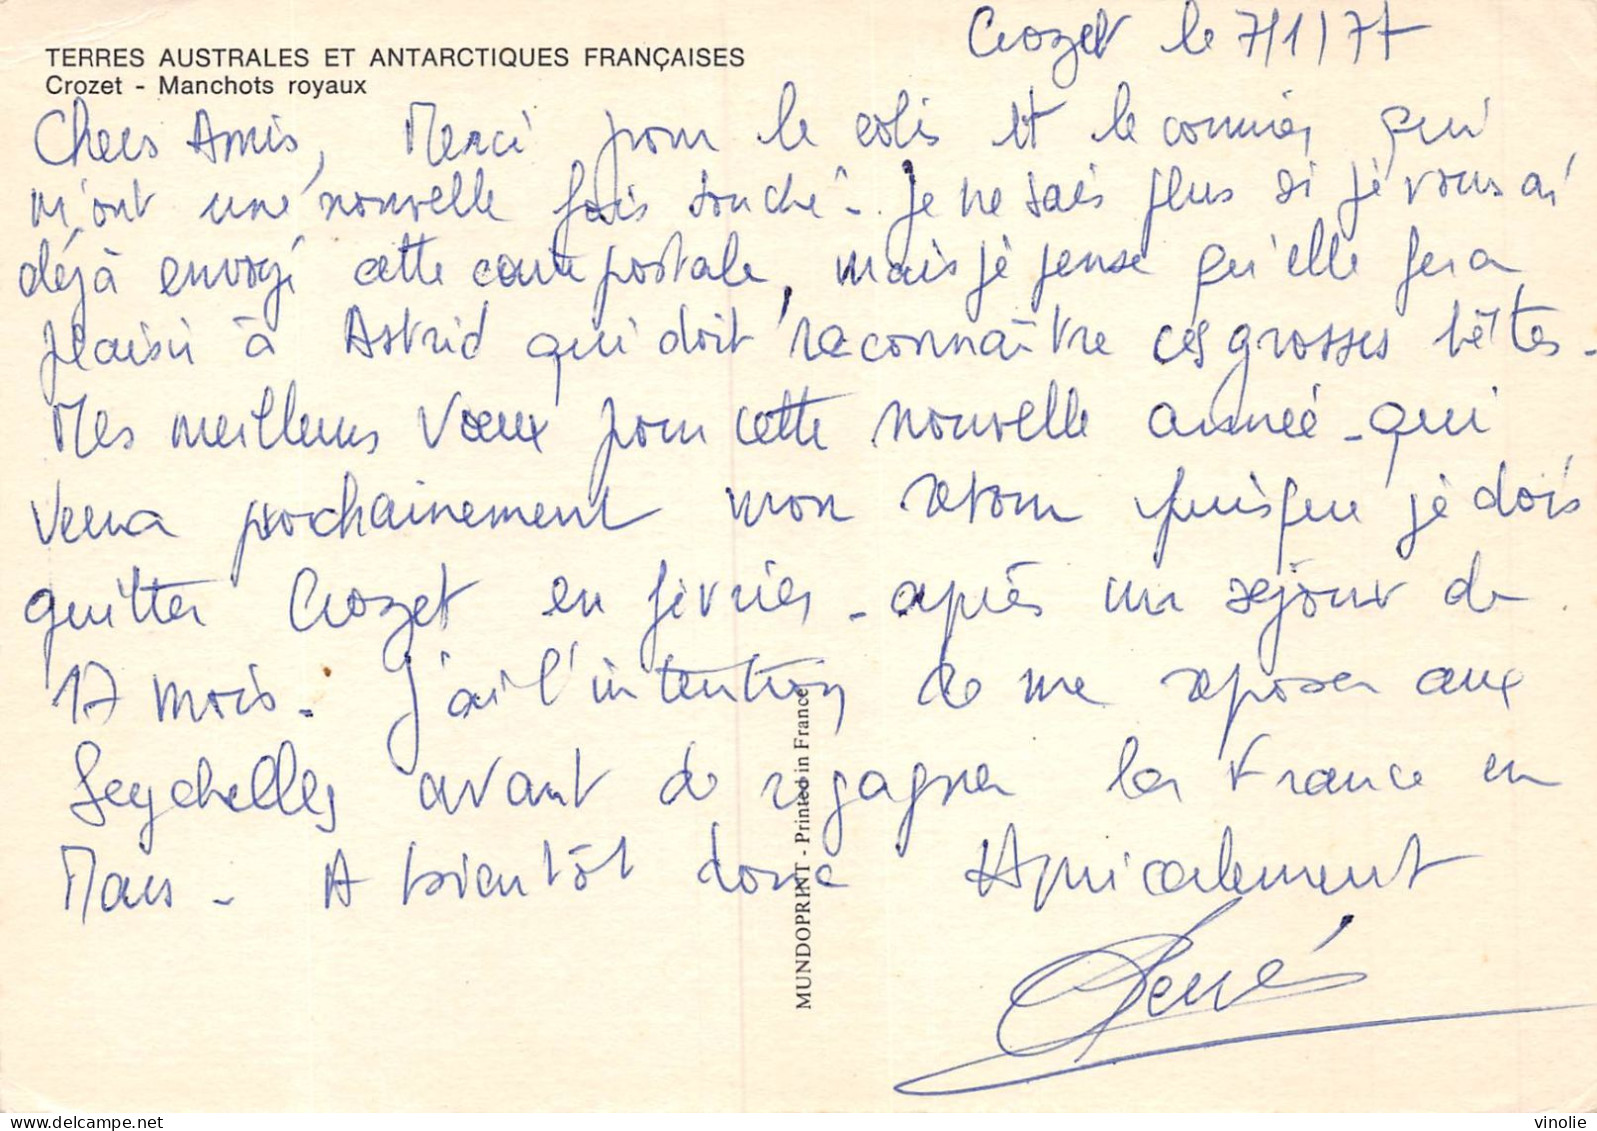 Crozet le 7/1/77
TERRES AUSTRALES ET ANTARCTIQUES FRANÇAISES
Crozet - Manchots royaux
Chers Amis, Merci pour le colis et le courrier qui
m'ont une nouvelle fois touché - Je ne sais plus si je vous ai
déjà envoyé cette carte postale, mais je pense qu'elle fera
plaisir à Astrid qui doit reconnaître ces grosses bêtes -
Mes meilleurs vœux pour cette nouvelle année - qui
verra prochainement mon retour puisque je dois
quitter Crozet en février - après un séjour de
17 mois - J'ai l'intention de me reposer aux
Seychelles avant de regagner la France en
Mars - A bientôt donc Amicalement
René
MUNDOPRINT - Printed in France
delcampe.net
vinolie